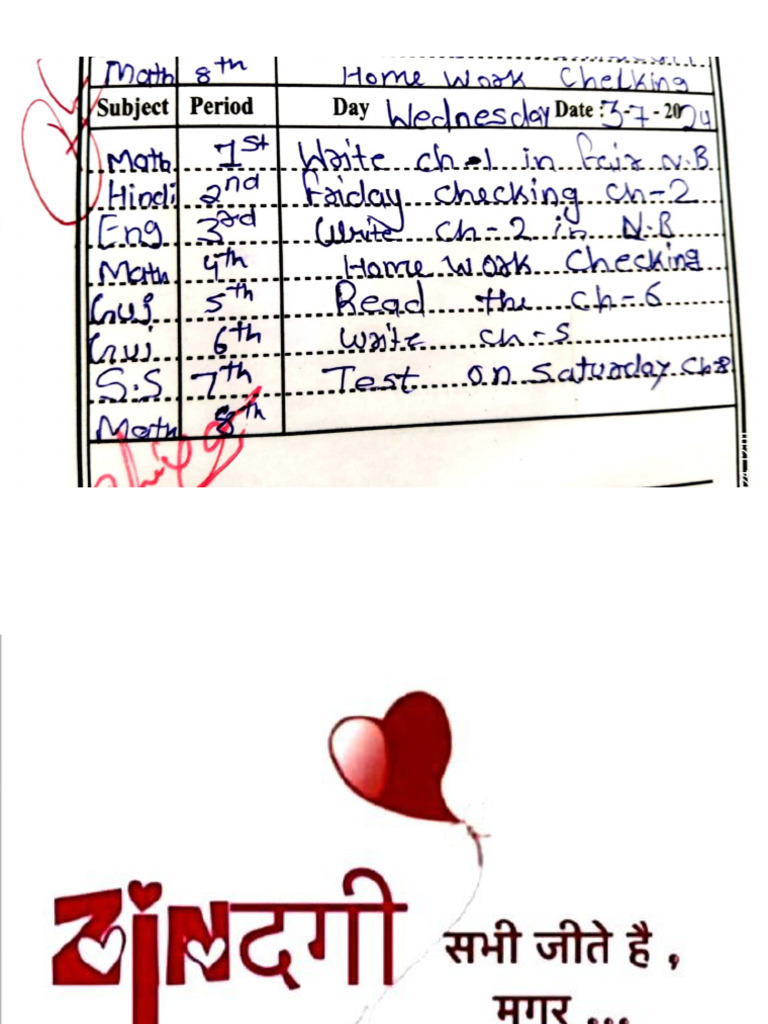 Math 8th Home Work Chelking
Subject Period Day Wednesday Date : 3-7-2024
Math 1st Write ch-1 in fair N.B
Hindi 2nd Friday checking ch-2
Eng 3rd Write ch-2 in N.B
Math 4th Home Work Checking
Guj 5th Read the ch-6
Guj 6th Write ch-5
S.S 7th Test on Saturday ch8
Math 8th
ZiNदगी सभी जीते है ,
मगर ...